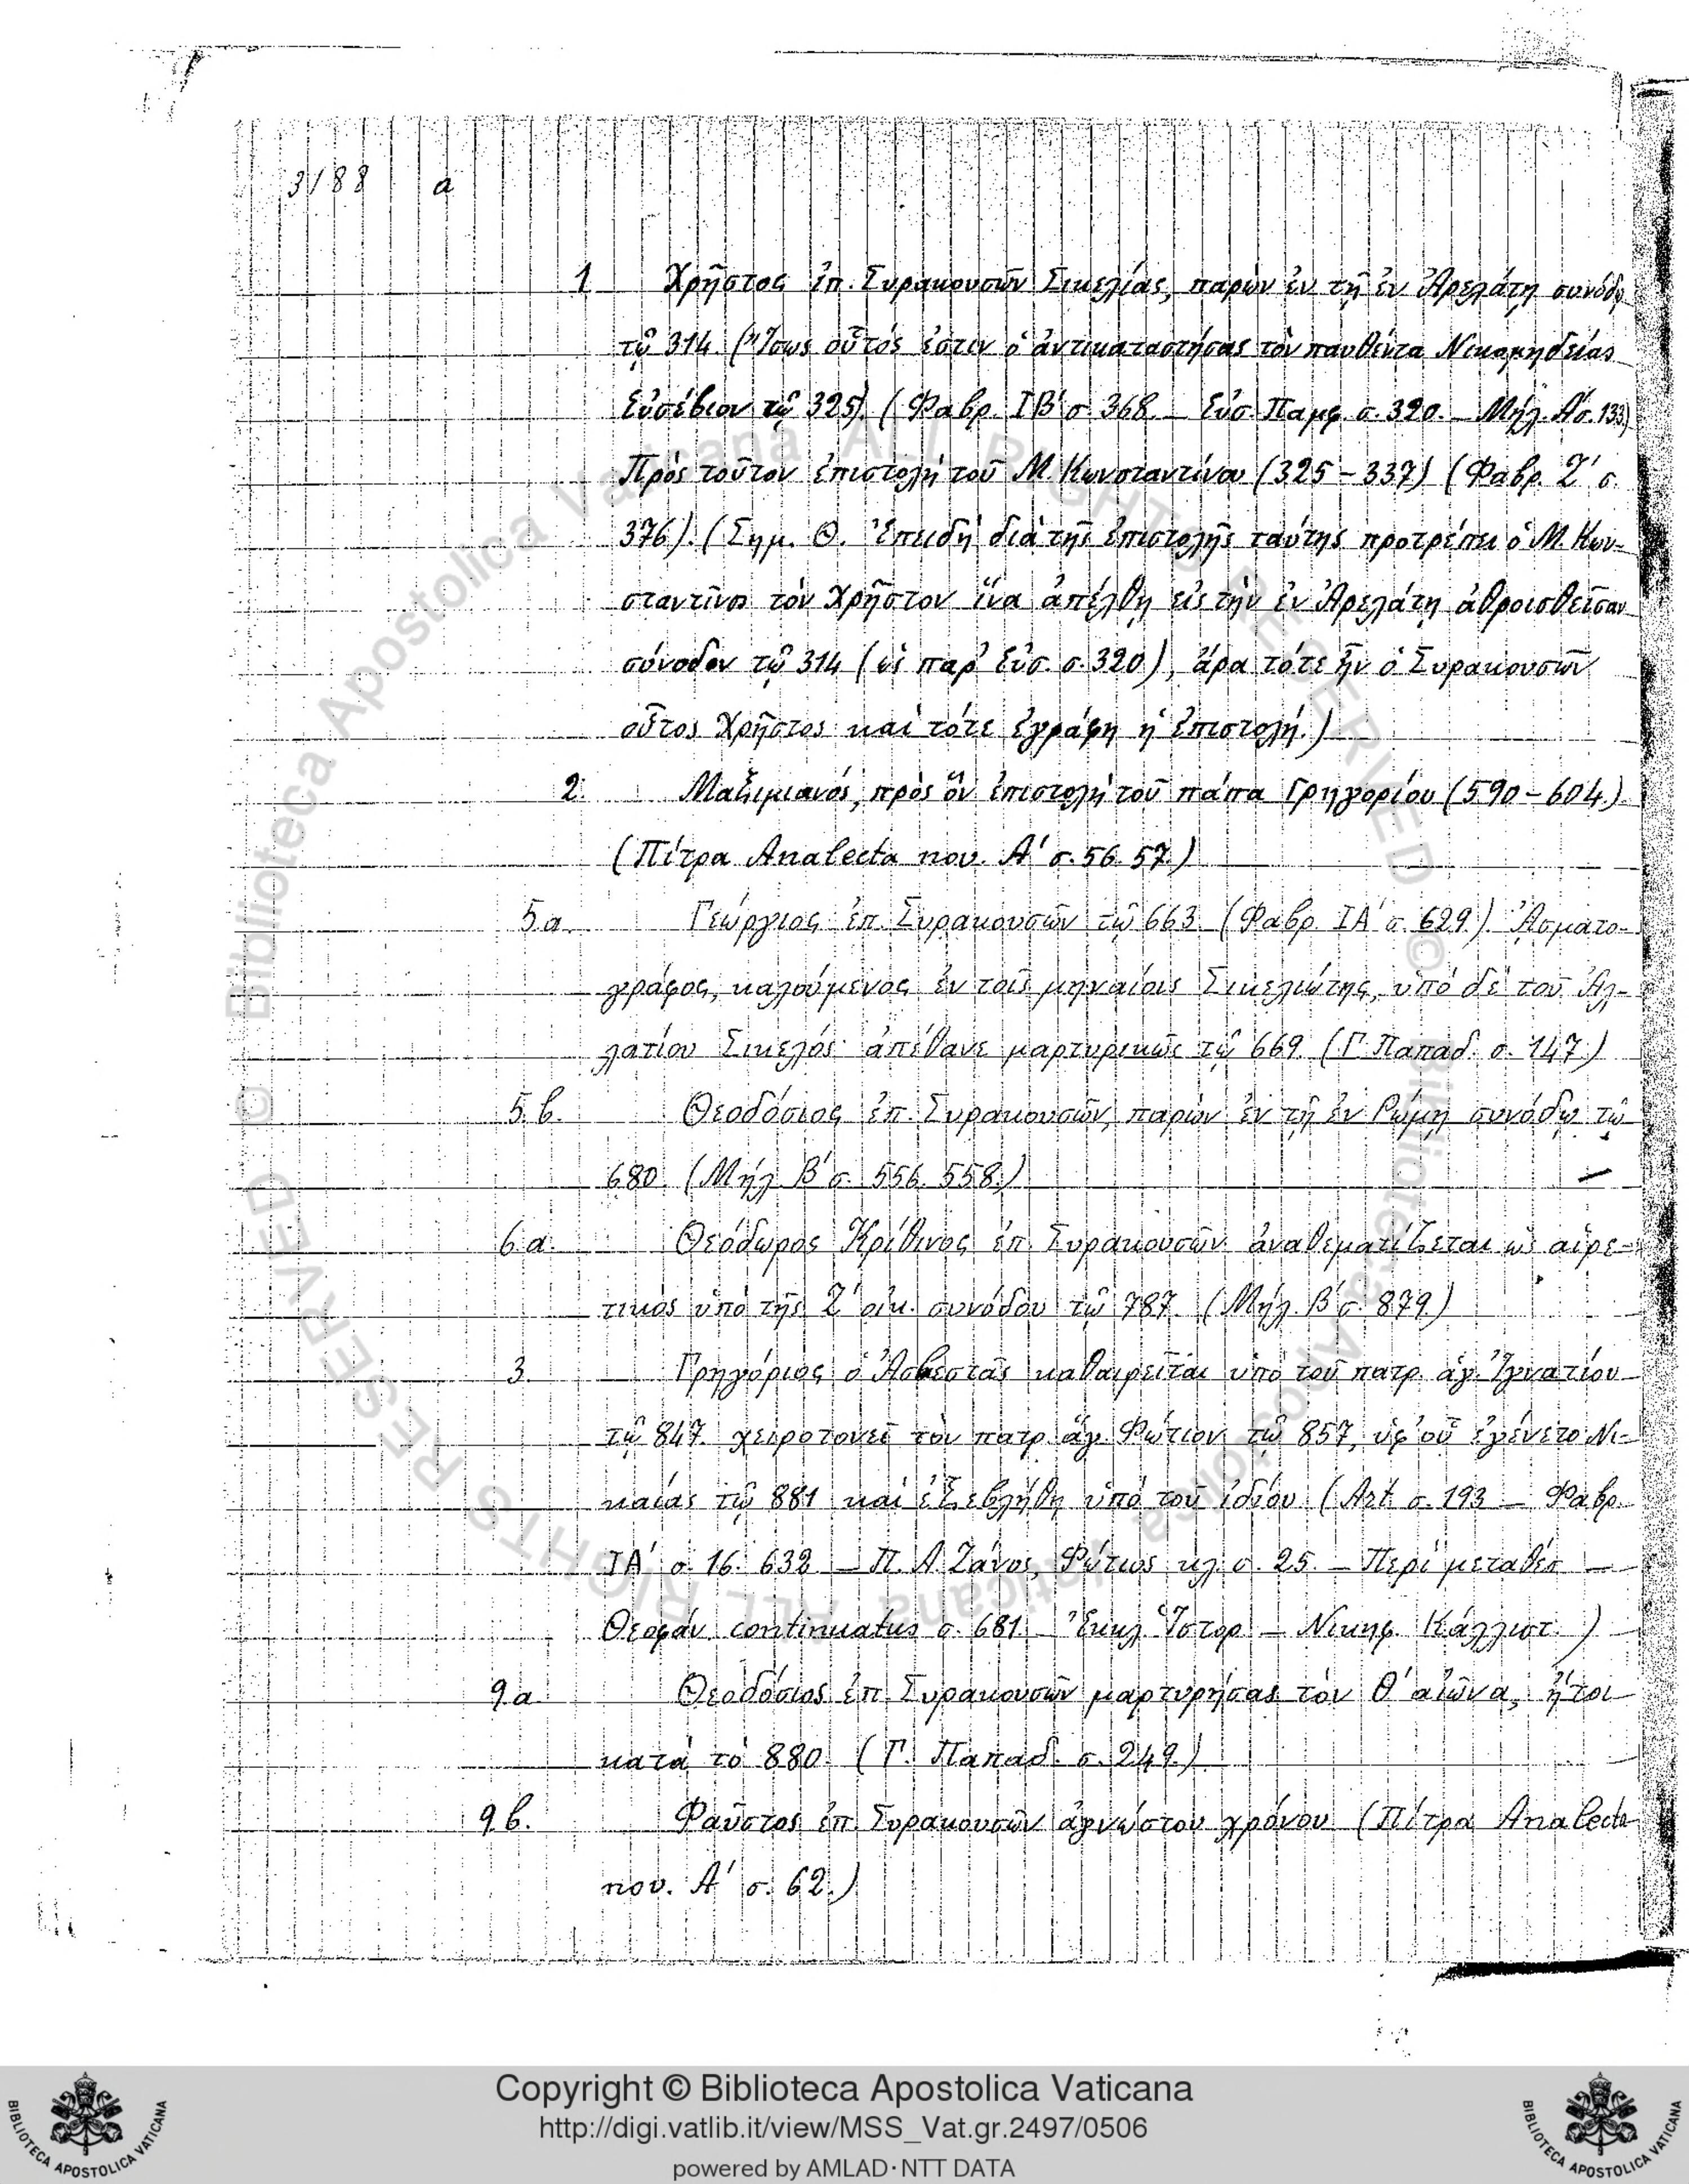 3188 a
1 Χρῆστος ἐπ. Συρακουσῶν Σικελίας, παρὼν ἐν τῇ ἐν Ἀρελάτῃ συνόδῳ
τῷ 314. (Ἴσως οὗτός ἐστιν ὁ ἀντικαταστήσας τὸν παυθέντα Νικομηδείας
Εὐσέβιον τῷ 325). (Φαβρ. ΙΒ΄ σ. 368. — Εὐσ. Παμφ. σ. 320. — Μήλ. Α΄ σ. 133)
Πρὸς τοῦτον ἐπιστολὴ τοῦ Μ. Κωνσταντίνου (325–337) (Φαβρ. Ζ΄ σ.
376). (Σημ. Θ. Ἐπειδὴ διὰ τῆς ἐπιστολῆς ταύτης προτρέπει ὁ Μ. Κων-
σταντῖνος τὸν Χρῆστον ἵνα ἀπέλθῃ εἰς τὴν ἐν Ἀρελάτῃ ἀθροισθεῖσαν
σύνοδον τῷ 314 (ὡς παρ' Εὐσ. σ. 320), ἄρα τότε ἦν ὁ Συρακουσῶν
οὗτος Χρῆστος καὶ τότε ἐγράφη ἡ ἐπιστολή.)
2. Μαξιμιανός, πρὸς ὃν ἐπιστολὴ τοῦ πάπα Γρηγορίου (590–604.)
(Πίτρα Analecta nov. Α΄ σ. 56. 57.)
5a. Γεώργιος ἐπ. Συρακουσῶν τῷ 663. (Φαβρ. ΙΑ΄ σ. 629.) Ἀσματο-
γράφος, καλούμενος ἐν τοῖς μηναίοις Σικελιώτης, ὑπὸ δὲ τοῦ Ἀλ-
λατίου Σικελός· ἀπέθανε μαρτυρικῶς τῷ 669. (Γ. Παπαδ. σ. 147.)
5.b. Θεοδόσιος ἐπ. Συρακουσῶν, παρὼν ἐν τῇ ἐν Ῥώμῃ συνόδῳ τῷ
680. (Μήλ. Β΄ σ. 556. 558.)
6.a. Θεόδωρος Κρίθινος ἐπ. Συρακουσῶν ἀναθεματίζεται ὡς αἱρε-
τικὸς ὑπὸ τῆς Ζ΄ οἰκ. συνόδου τῷ 787. (Μήλ. Β΄ σ. 879.)
3. Γρηγόριος ὁ Ἀσβεστᾶς καθαιρεῖται ὑπὸ τοῦ πατρ. ἁγ. Ἰγνατίου
τῷ 847. χειροτονεῖ τὸν πατρ. ἅγ. Φώτιον τῷ 857, ὑφ' οὗ ἐγένετο Νι-
καίας τῷ 881 καὶ ἐξεβλήθη ὑπὸ τοῦ ἰδίου (Art. σ. 193 — Φαβρ.
ΙΑ΄ σ. 16. 632 — Π. Α. Ζάνος, Φώτιος κλ. σ. 25. — Περὶ μεταθέσ. —
Θεοφάν. continuatus σ. 681. — Ἐκκλ. Ἱστορ. — Νικηφ. Κάλλιστ.)
9.a. Θεοδόσιος ἐπ. Συρακουσῶν μαρτυρήσας τὸν Θ΄ αἰῶνα, ἤτοι
κατὰ τὸ 880. (Γ. Παπαδ. σ. 249.)
9.b. Φαῦστος ἐπ. Συρακουσῶν ἀγνώστου χρόνου (Πίτρα Analecta
nov. Α΄ σ. 62.)
Copyright © Biblioteca Apostolica Vaticana
http://digi.vatlib.it/view/MSS_Vat.gr.2497/0506
powered by AMLAD·NTT DATA
© Biblioteca Apostolica Vaticana ALL RIGHTS RESERVED
© Biblioteca Apostolica Vaticana ALL RIGHTS RESERVED
BIBLIOTECA APOSTOLICA VATICANA
BIBLIOTECA APOSTOLICA VATICANA